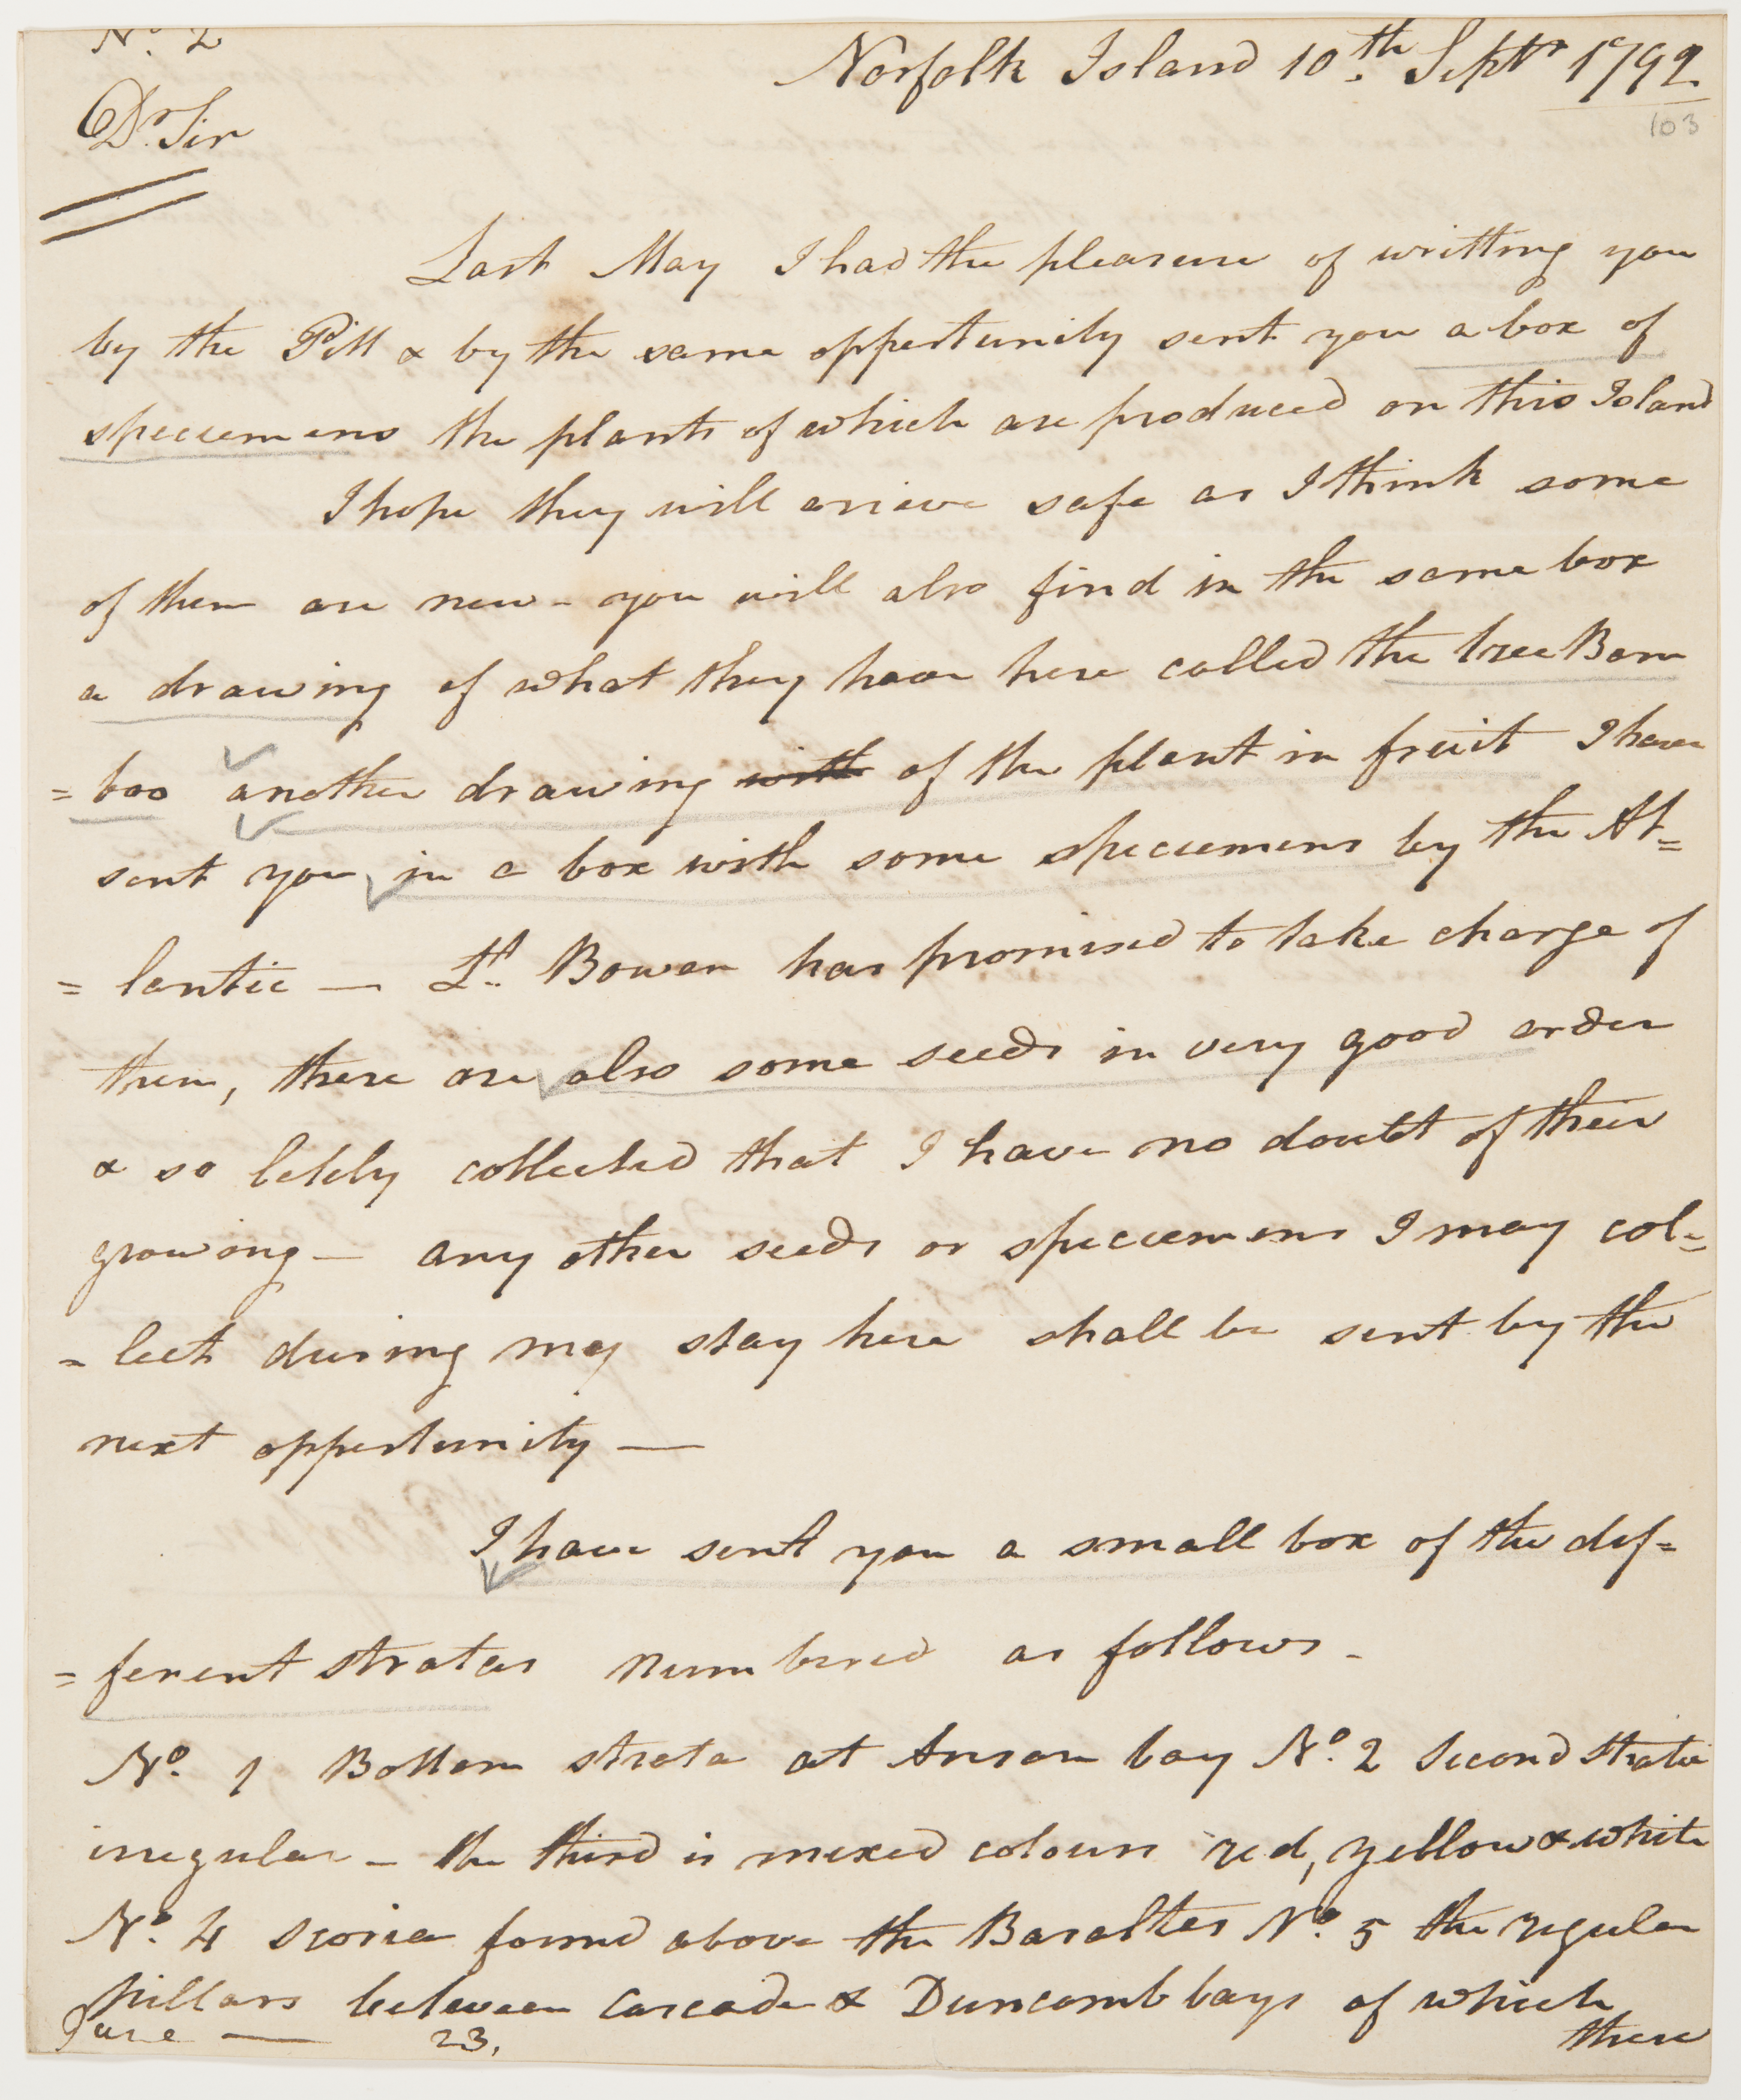 No. 2
Norfolk Island 10.th Septr 1792
103
Dr. Sir
Last May I had the pleasure of writting you
by the Pitt & by the same oppertunity sent you a box of
speciemens the plants of which are produced on this Island
I hope they will arieve safe as I think some
of them are new - you will also find in the same box
a drawing of what they have here called the tree Bam
= boo another drawing with of the plant in fruit I have
sent you in a box with some speciemens by the At=
= lantic — Lt. Bowen has promised to take charge of
them, there are also some seeds in very good order
& so letely collected that I have no doubt of their
growing — any other seeds or speciemens I may col=
= lect during my stay here shall be sent by the
next oppertunity —
I have sent you a small box of the dif=
= ferent stratas numbered as follows -
No. 1 Bottom strata at Anson bay No. 2 Second strata
irregular - the third is mixed colours red, yellow & white
No. 4 scoria found above the Basaltes No. 5 the regular
pillars between Cascade & Duncomb bays of which
there
June — 23,